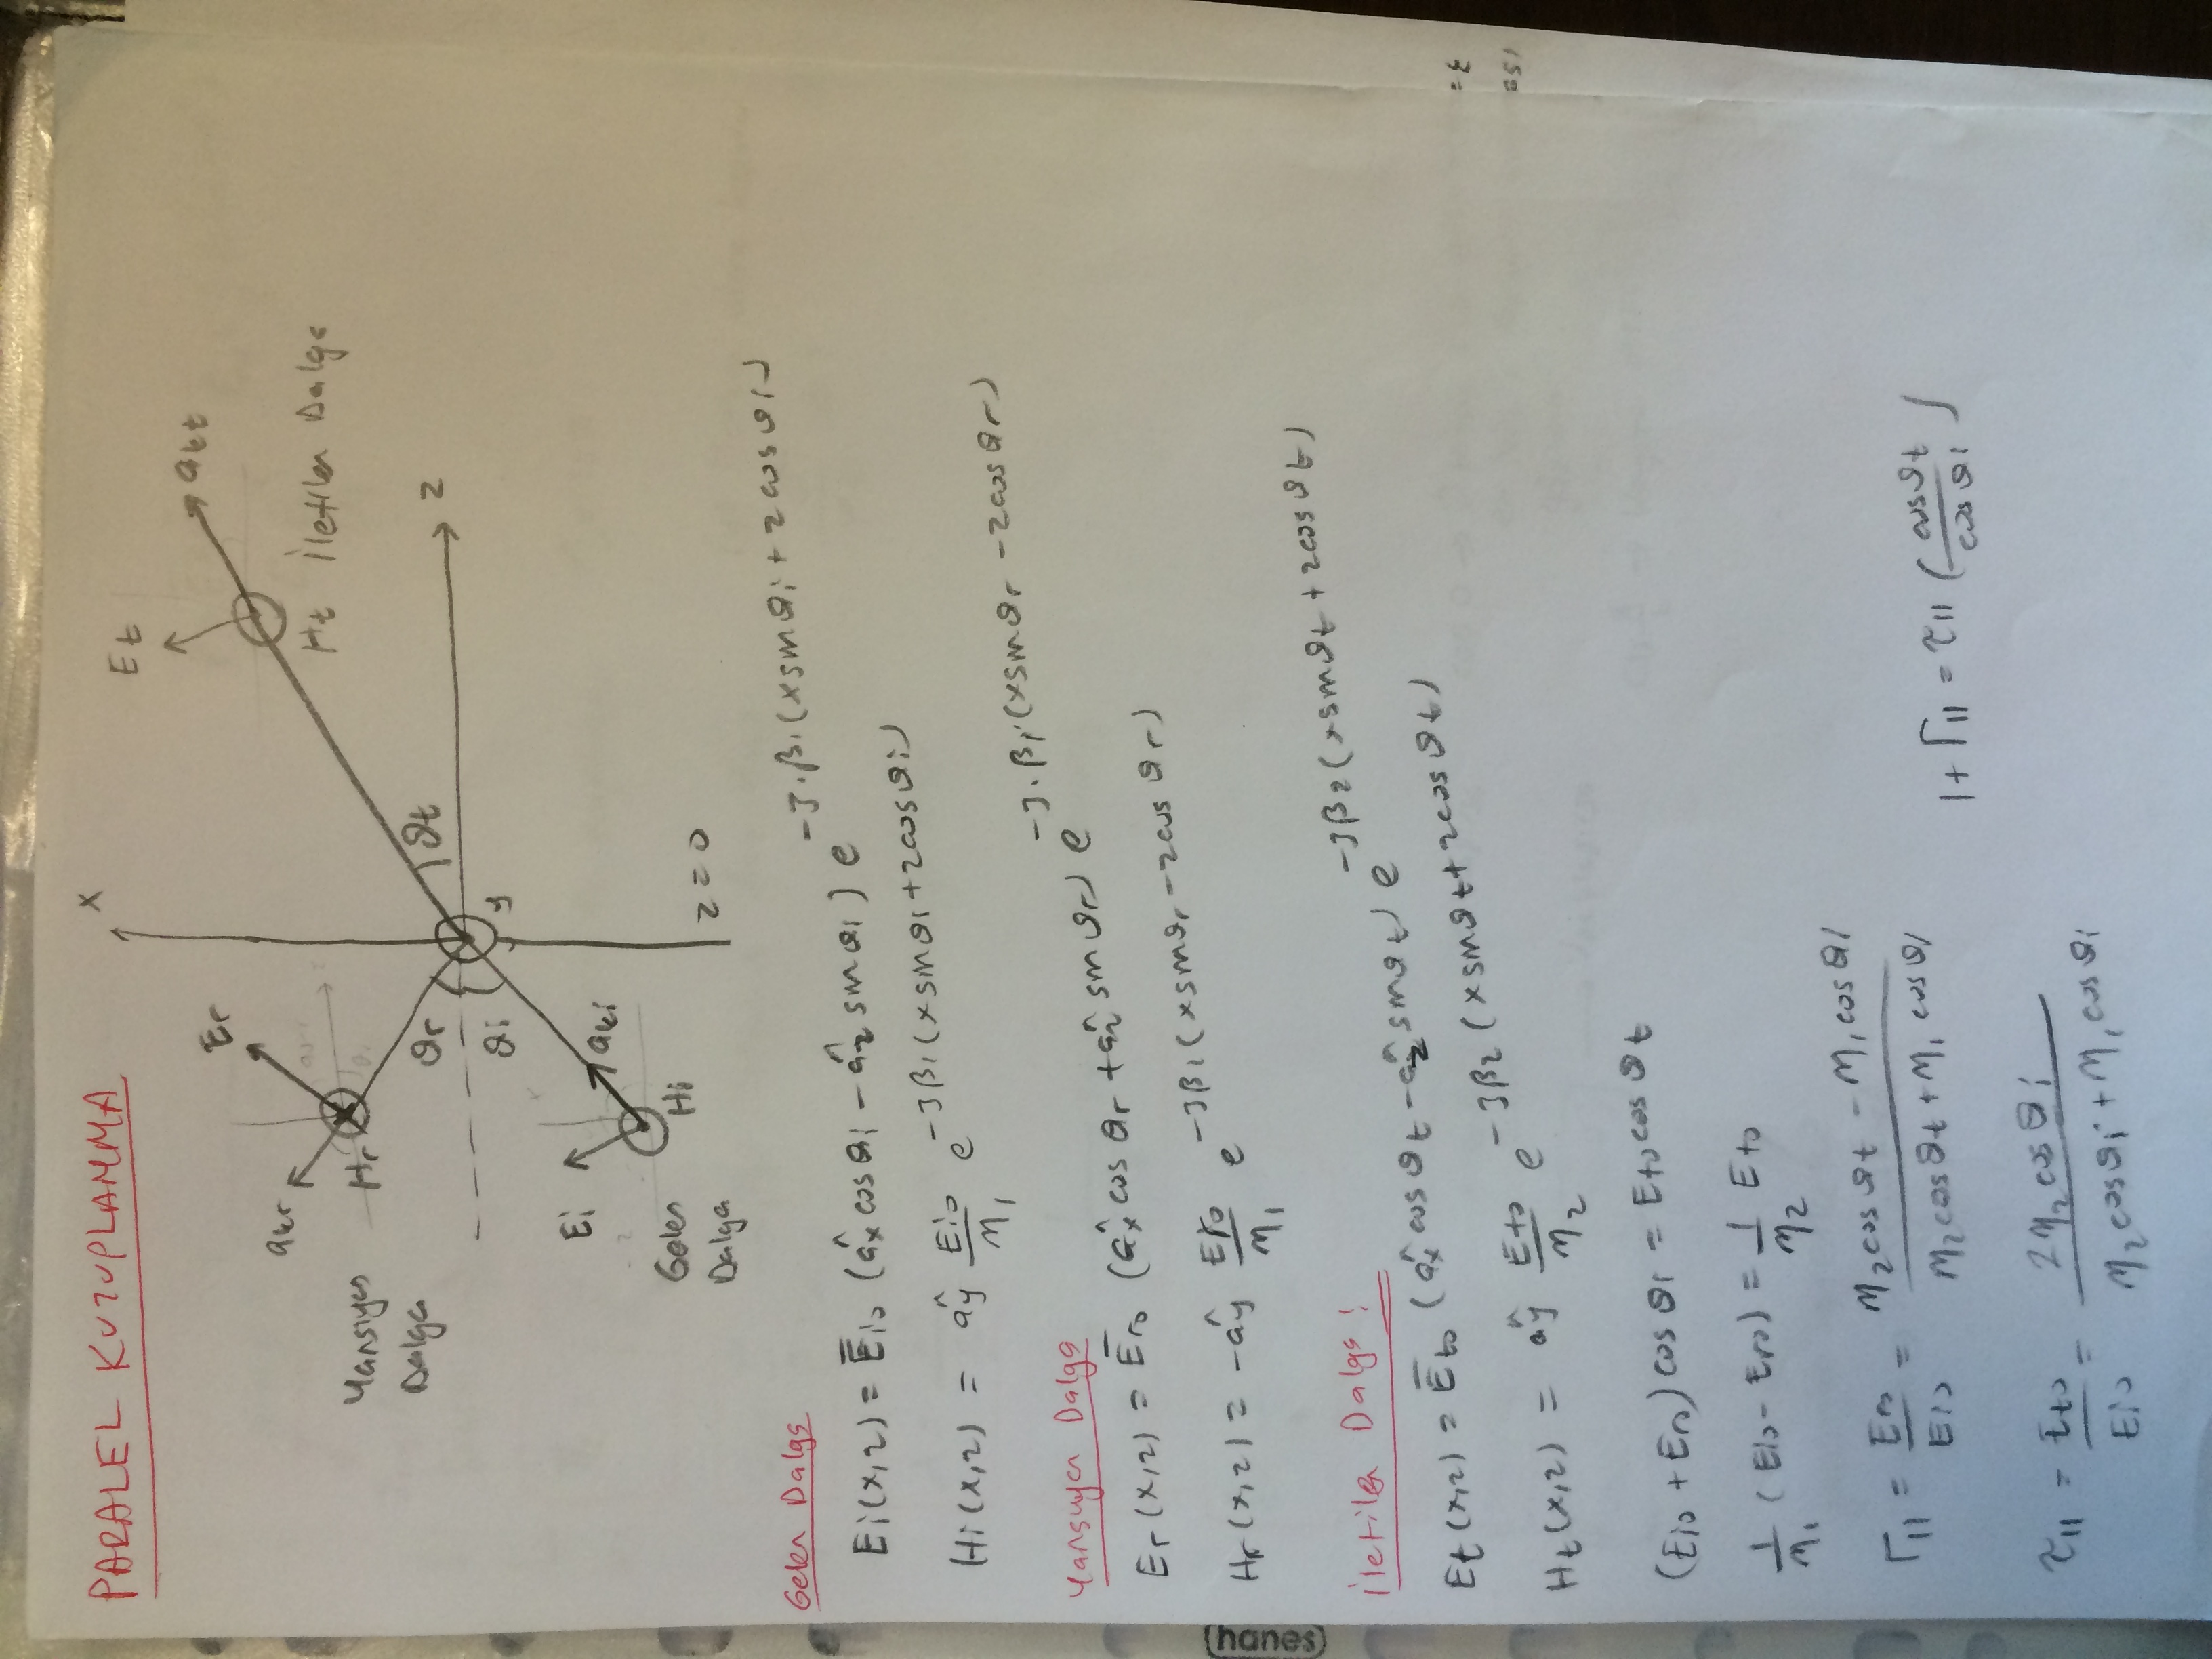 PARALEL KUTUPLANMA
x
Et
akt
Er
akr
Hr
Ht İletilen Dalga
Yansıyan
Dalga
θr
θt
z
θi
y
Ei
aki
Hi
Gelen
Dalga
z = 0
Gelen Dalga
Ei(x,z) = Ēio (âx cosθi - âz sinθi) e^-J.β1(xsinθi + zcosθi)
Hi(x,z) = ây Eio/η1 e^-Jβ1(xsinθi+zcosθi)
Yansıyan Dalga
Er(x,z) = Ēro (âx cosθr + âz sinθr) e^-J.β1(xsinθr - zcosθr)
Hr(x,z) = -ây Ero/η1 e^-Jβ1(xsinθr - zcosθr)
İletilen Dalga:
Et(x,z) = Ēto (âx cosθt - âz sinθt) e^-Jβ2(xsinθt + zcosθt)
Ht(x,z) = ây Eto/η2 e^-Jβ2(xsinθt + zcosθt)
(Eio + Ero) cosθi = Eto cosθt
1/η1 (Eio - Ero) = 1/η2 Eto
Γ|| = Ero/Eio = (η2cosθt - η1cosθi)/(η2cosθt + η1cosθi)
1 + Γ|| = τ|| (cosθt/cosθi)
τ|| = Eto/Eio = 2η2cosθi/(η2cosθi + η1cosθi)
hanes